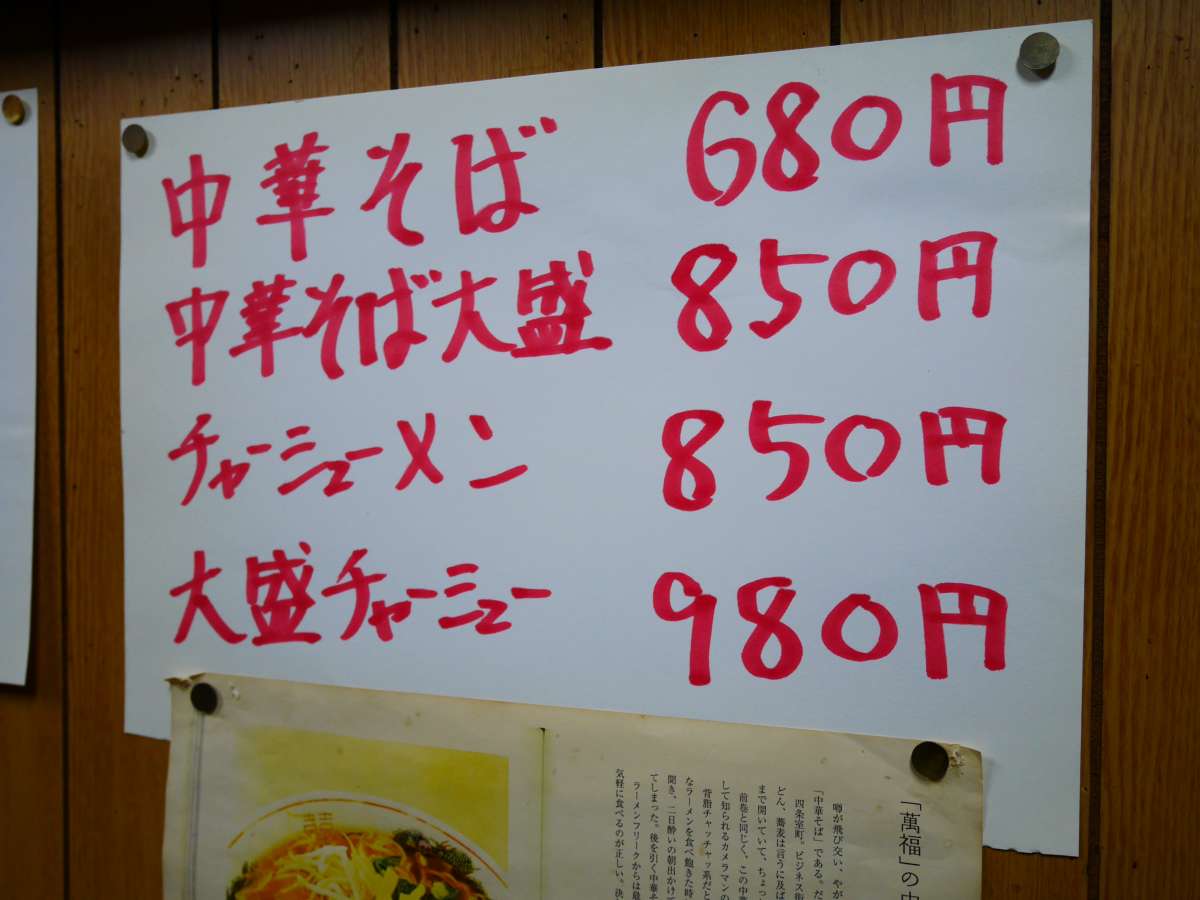 中華そば 680円
中華そば大盛 850円
チャーシューメン 850円
大盛チャーシュー 980円
「萬福」の中
噂が飛び交い、やが
「中華そば」である。だ
四条室町。ビジネス街
どん、蕎麦は言うに及ば
まで開いていて、ちょっ
前巻と同じく、この中華
して知られるカメラマンの
背脂チャッチャッ系だと
なラーメンを食べ飽きた時
開き、二日酔いの朝出かけて
てしまった。後を引く中華そ
ラーメンフリークからは
気軽に食べるのが正しい。決